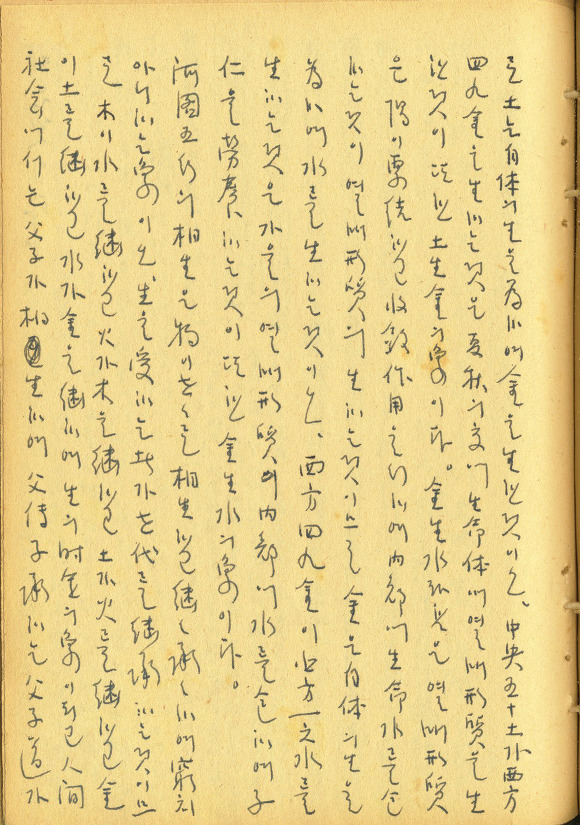 로 土는 自体의 生을 爲하여 金을 生한 것이오, 中央五十土가 西方
四九金을 生하는 것은 夏秋의 交에 生命体에 열매 形質을 生
한 것이 또한 土生金의 象이다。金生水 은 열매 形質
은 陽이 하고 收斂作用을 行하여 內部에 生命水를 含
하는 것이 열매 形質의 生하는 것이므로 金은 自体의 生을
爲하여 水를 生하는 것이오, 西方四九金이 北方一六水를
生하는 것은 가을의 열매 形質의 內部에 水를 含하여 子
仁을 勞養하는 것이 또한 金生水의 象이다。
河圖五行의 相生은 物이 世々로 相生하고 継々承々하여 窮치
아니하는 象이오, 生을 受하는 者가 世代를 継承하는 것이므
로 木이 水를 継하고 火가 木을 継하고 土가 火를 継하고 金
이 土를 継하고 水가 金을 継하여 生의 象이 되고 人間
社会에서는 父子가 相生하여 父傳子承하는 父子道가